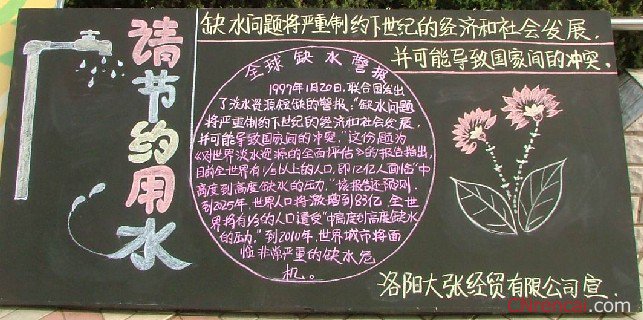 请节约用水
缺水问题将严重制约下世纪的经济和社会发展,
并可能导致国家间的冲突。
全球缺水警报
1997年1月20日,联合国发出
了淡水资源短缺的警报:"缺水问题
将严重制约下世纪的经济和社会发展,
并可能导致国家间的冲突。"这份题为
《对世界淡水资源的全面评估》的报告指出,
目前全世界有1/5以上的人口,即12亿人面临"中
高度到高度缺水的压力。"该报告还预测,
到2025年,世界人口将激增到83亿,全世
界将有1/3的人口遭受"中高度到高度缺水
的压力。"到2010年,世界城市将面
临非常严重的缺水危
机。
洛阳大张经贸有限公司宣